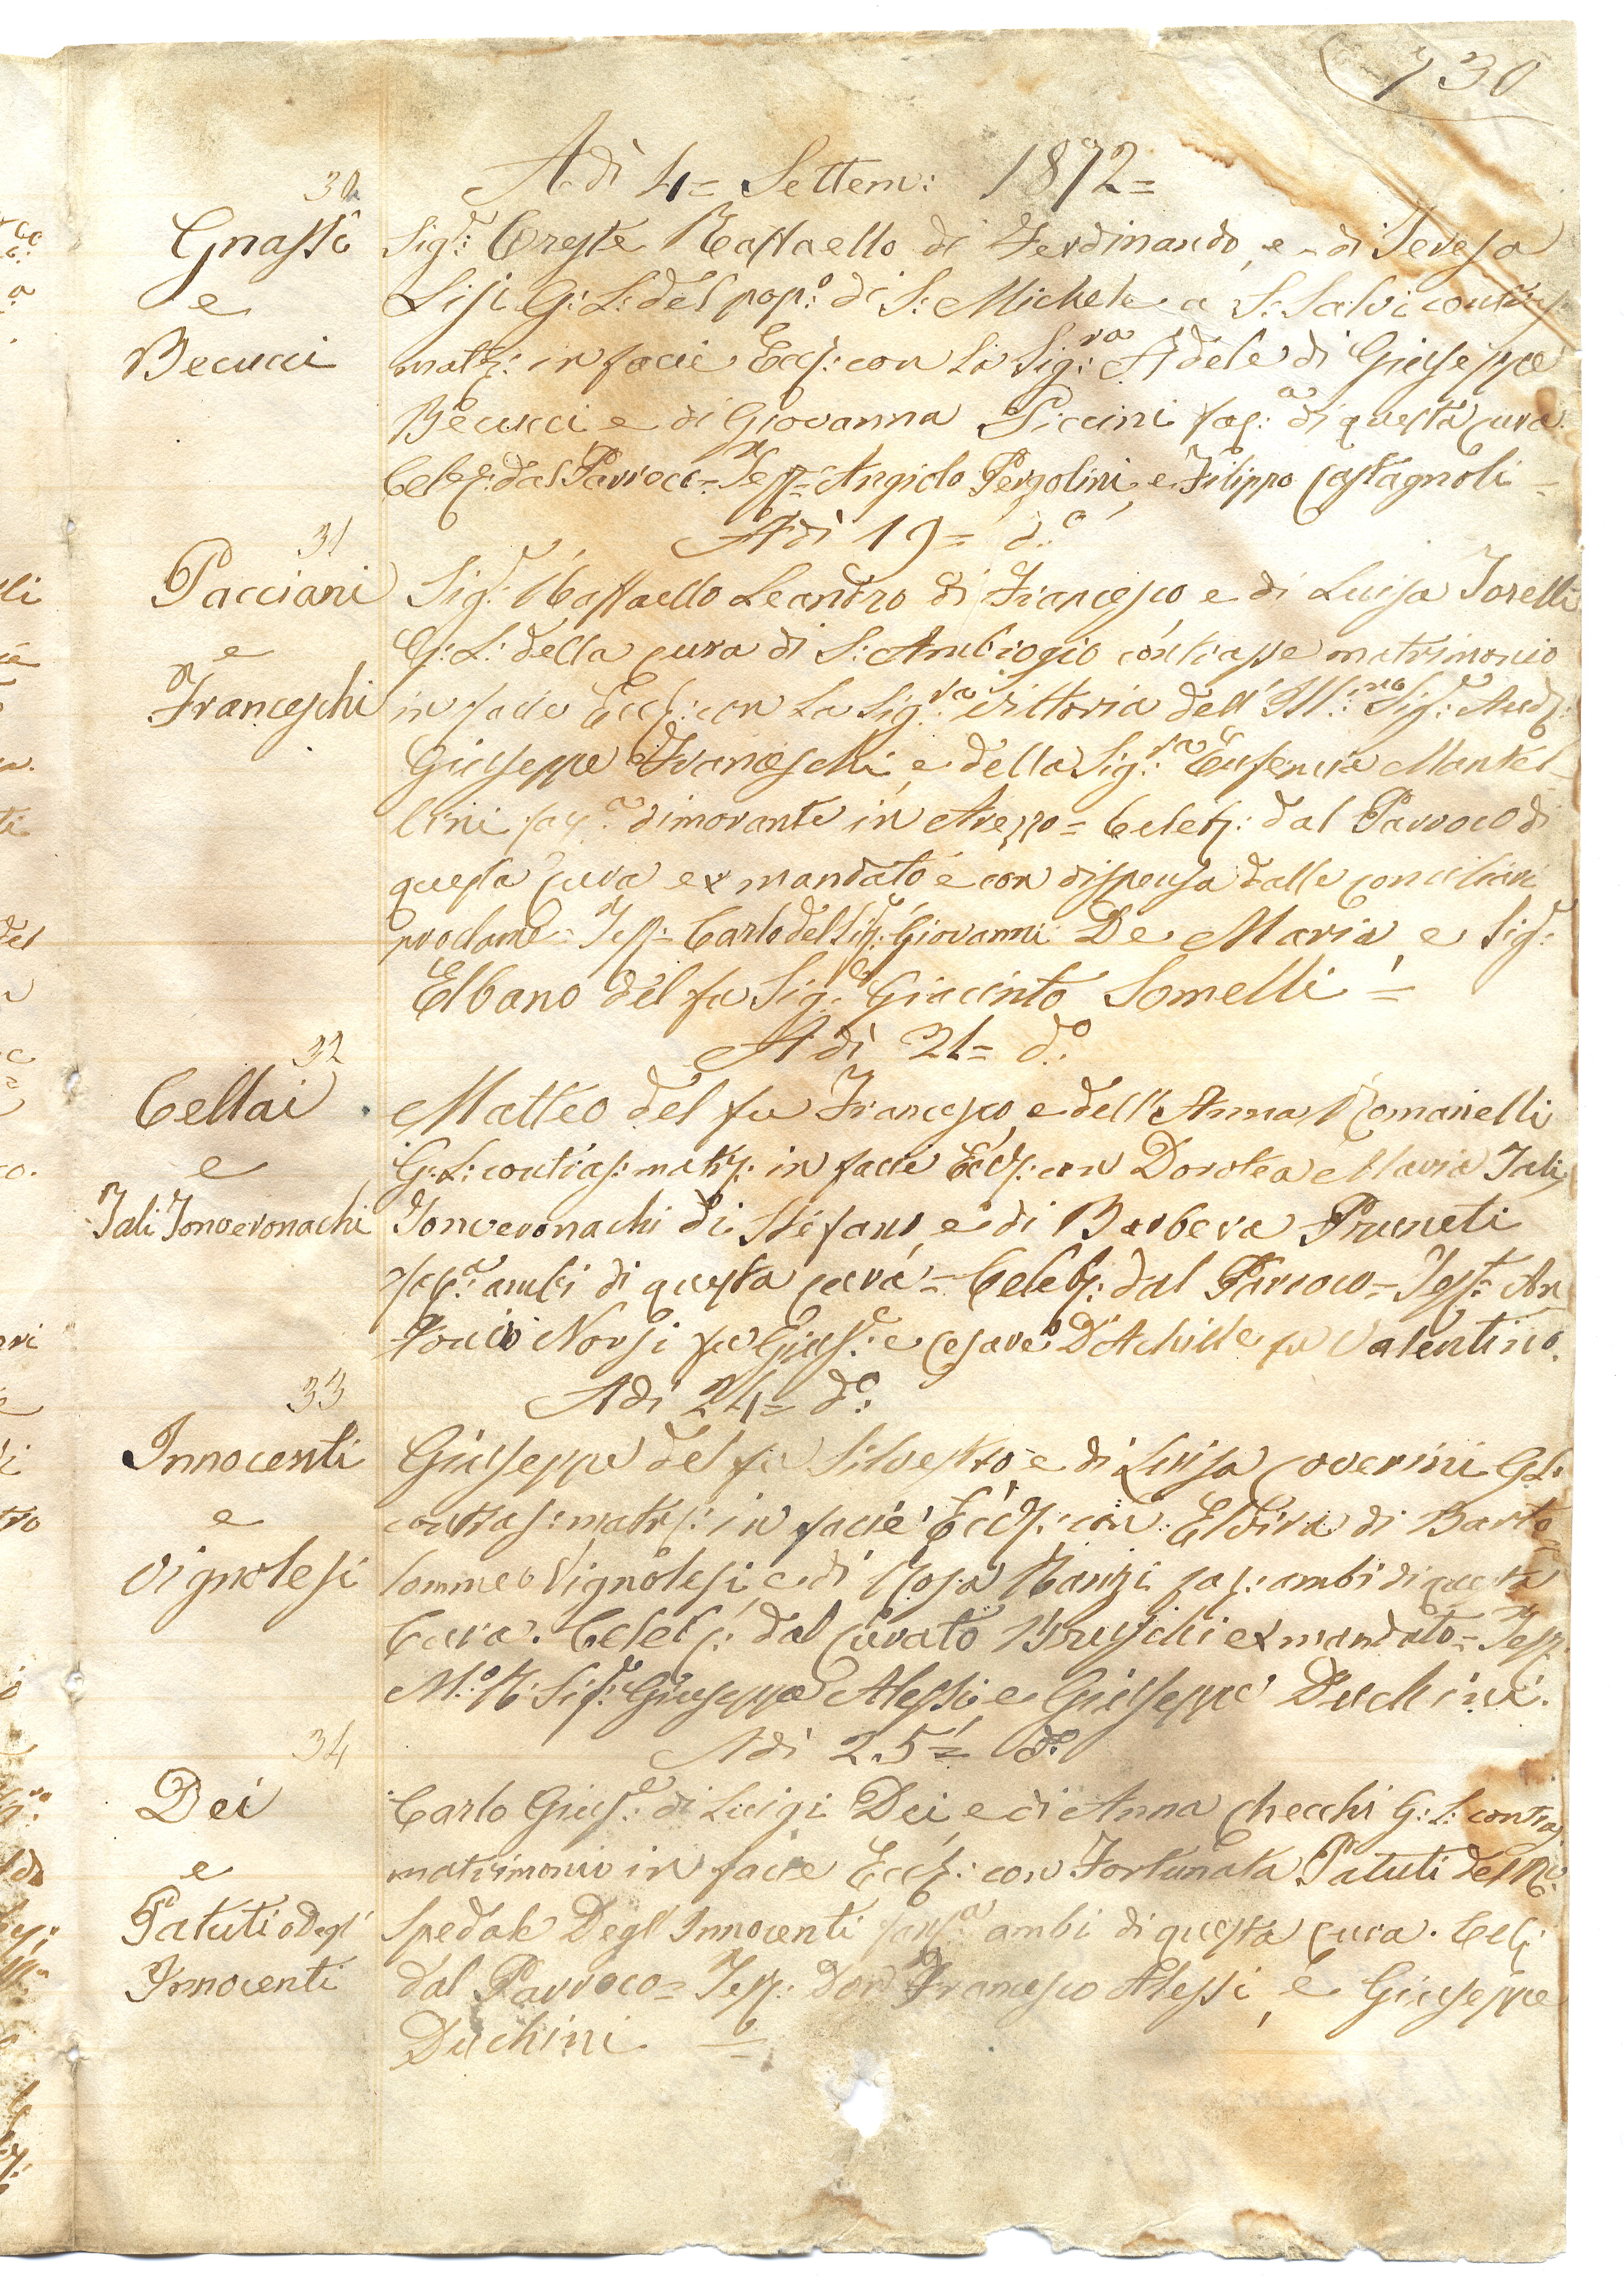 730
Adì 4= Settem: 1872=
30
Gnassi
e
Becucci
Sig:r Oreste Raffaello di Ferdinando, e di Teresa
Lisi G: L: del pop:o di S: Michele a S: Salvi contras:
matr: in facie Eccl: con la Sig:ra Adele di Giuseppe
Becucci e di Giovanna Piccini fag:a di questa Cura
Celeb: dal Parroco = Test:= Angiolo Pergolini, e Filippo Castagnoli =
Adì 19= d:o
31
Pacciani
e
Franceschi
Sig:r Raffaello Leandro di Francesco e di Luisa Torelli
G: L: della Cura di S: Ambrogio contrasse matrimonio
in facie Eccl: con la Sig:ra Vittoria dell' Ill:mo Sig:r
Giuseppe Franceschi, e della Sig:ra Eufemia Mantel=
lini dimorante in Arezzo = Celeb: dal Parroco di
questa Cura ex mandato e con dispensa dalle conciliari
proclame = Test:= Carlo del Sig:r Giovanni De Maria, e Sig:r
Elbano del fu Sig:r Giacinto Somelli =
Adì 21= d:o
32
Cellai
e
Tali Tonveronachi
Matteo del fu Francesco, e dell' Anna Romanelli
G: L: contras: matr: in facie Eccl: con Dorotea Maria Tali
Tonveronachi di Stefano, e di Barbera Pruneti
ambi di questa Cura = Celeb: dal Parroco = Test:= An=
tonio Norsi fu Gius:e e Cesare D'Achille fu Valentino.
33
Adì 24= d:o
Innocenti
e
Vignolesi
Giuseppe del fu Silvestro, e di Luisa Coverini G: L:
contras: matr: in facie Eccl: con Elvira di Barto=
lommeo Vignolesi, e di Rosa Ranzi fag: ambi di questa
Cura. Celeb: dal Curato Bruschi ex mandato = Test:
M:o R: Sig:r Giuseppe Alessi, e Giuseppe Duchini.
34
Adì 25= d:o
Dei
e
Patuti o Degl'
Innocenti
Carlo Gius:e di Luigi Dei, e di Anna Checchi G: L: contras
matrimonio in facie Eccl: con Fortunata Patuti del R:o
Spedale Degl' Innocenti ambi di questa Cura. Cel:
dal Parroco = Test: Don Francesco Alessi, e Giuseppe
Duchini. =